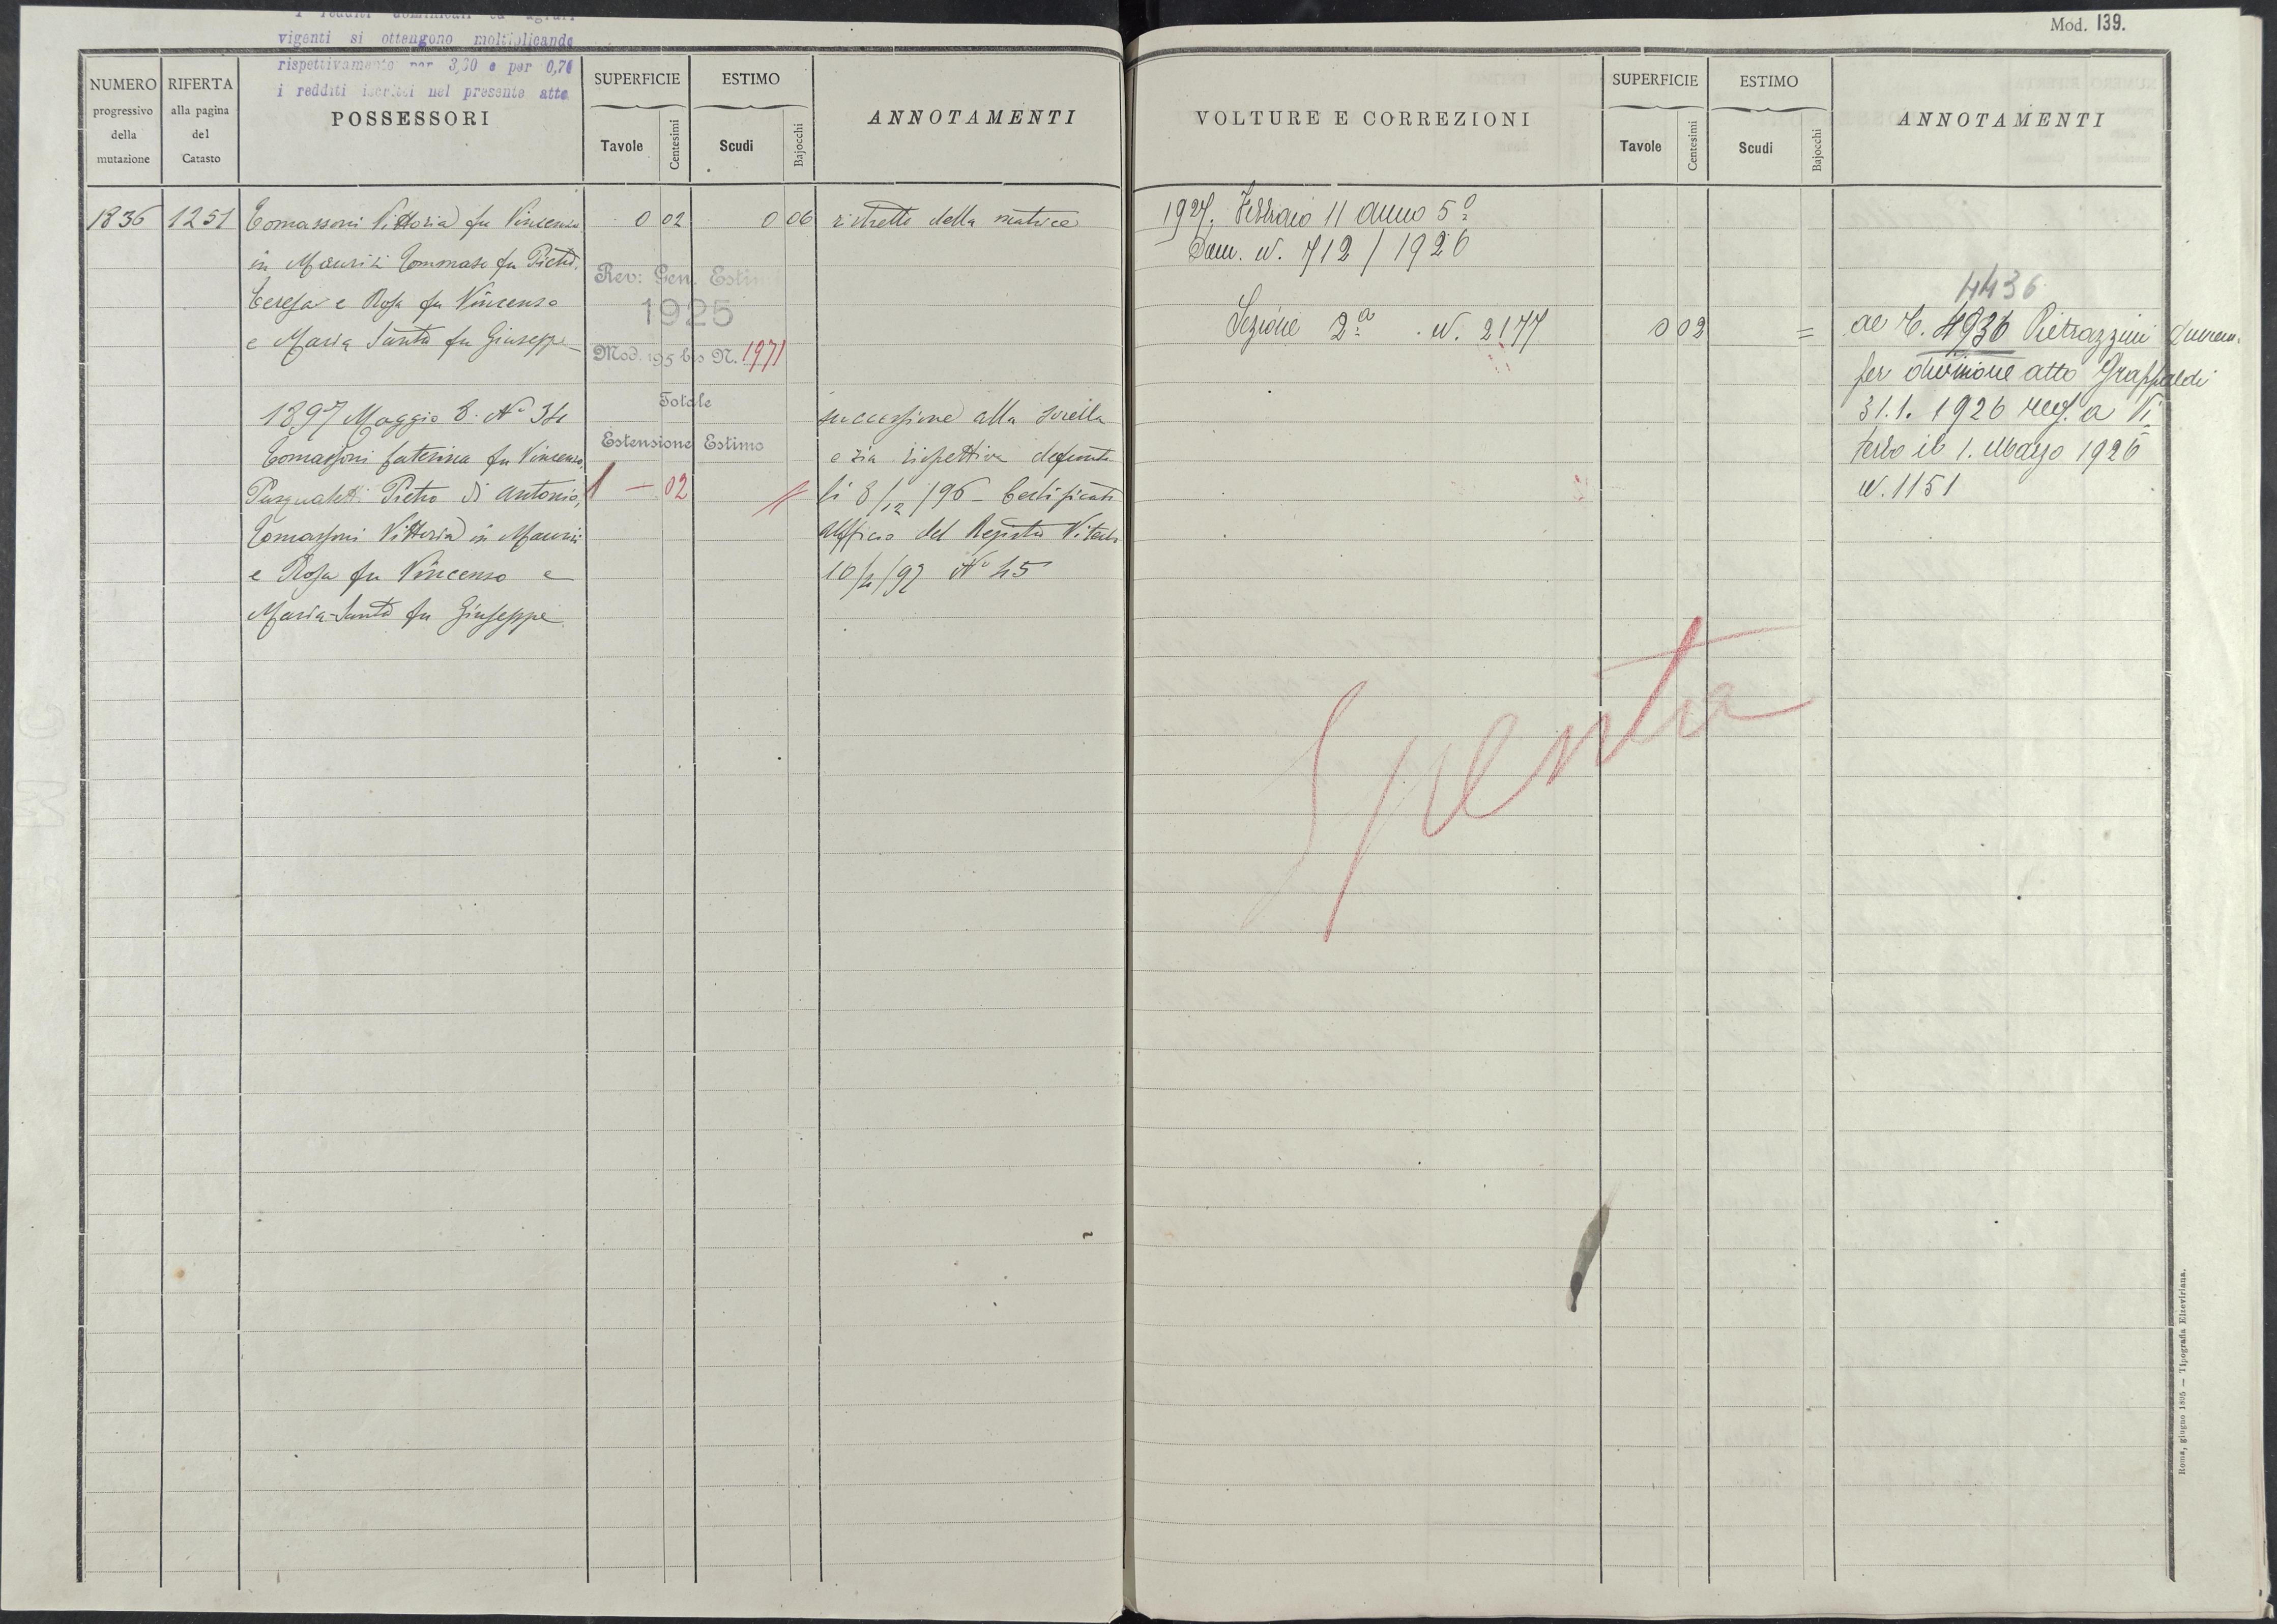 vigenti si ottengono moltiplicando
rispettivamente per 3,30 e per 0,70
i redditi iscritti nel presente atto
NUMERO
progressivo
della
mutazione
RIFERTA
alla pagina
del
Catasto
POSSESSORI
SUPERFICIE
Tavole
Centesimi
ESTIMO
Scudi
Bajocchi
ANNOTAMENTI
1836 1251 Tomassoni Vittoria fu Vincenzo 0 02 0 06 ristretto della matrice
in Maurizi Tommaso fu Pietro,
Teresa e Rosa fu Vincenzo
e Maria Santa fu Giuseppe
Rev: Gen. Estimi
1925
Mod. 195 bis N. 1971
Totale
Estensione Estimo
1 — 02
1897 Maggio 8. N° 34
Tomassoni Caterina fu Vincenzo,
Pasqualetti Pietro di Antonio,
Tomassoni Vittoria in Maurizi
e Rosa fu Vincenzo e
Maria-Santa fu Giuseppe
successione alla sorella
e zia rispettiva defunta
li 8/12/96 - Certificato
Ufficio del Registro Viterbo
N° 45
Mod. 139.
VOLTURE E CORREZIONI
SUPERFICIE
Tavole
Centesimi
ESTIMO
Scudi
Bajocchi
ANNOTAMENTI
1927. Febbraio 11 anno 5°
Dom. N. 712/1926
Sezione 2a. N. 2177 0 02 =
4436
al C. 4936 Pietrazzini
per divisione atto Grappaldi
31.1.1926 reg. a Vi
terbo il 1. Marzo 1926
N. 1151
Spenta
Roma, giugno 1895 — Tipografia Elzeviriana.